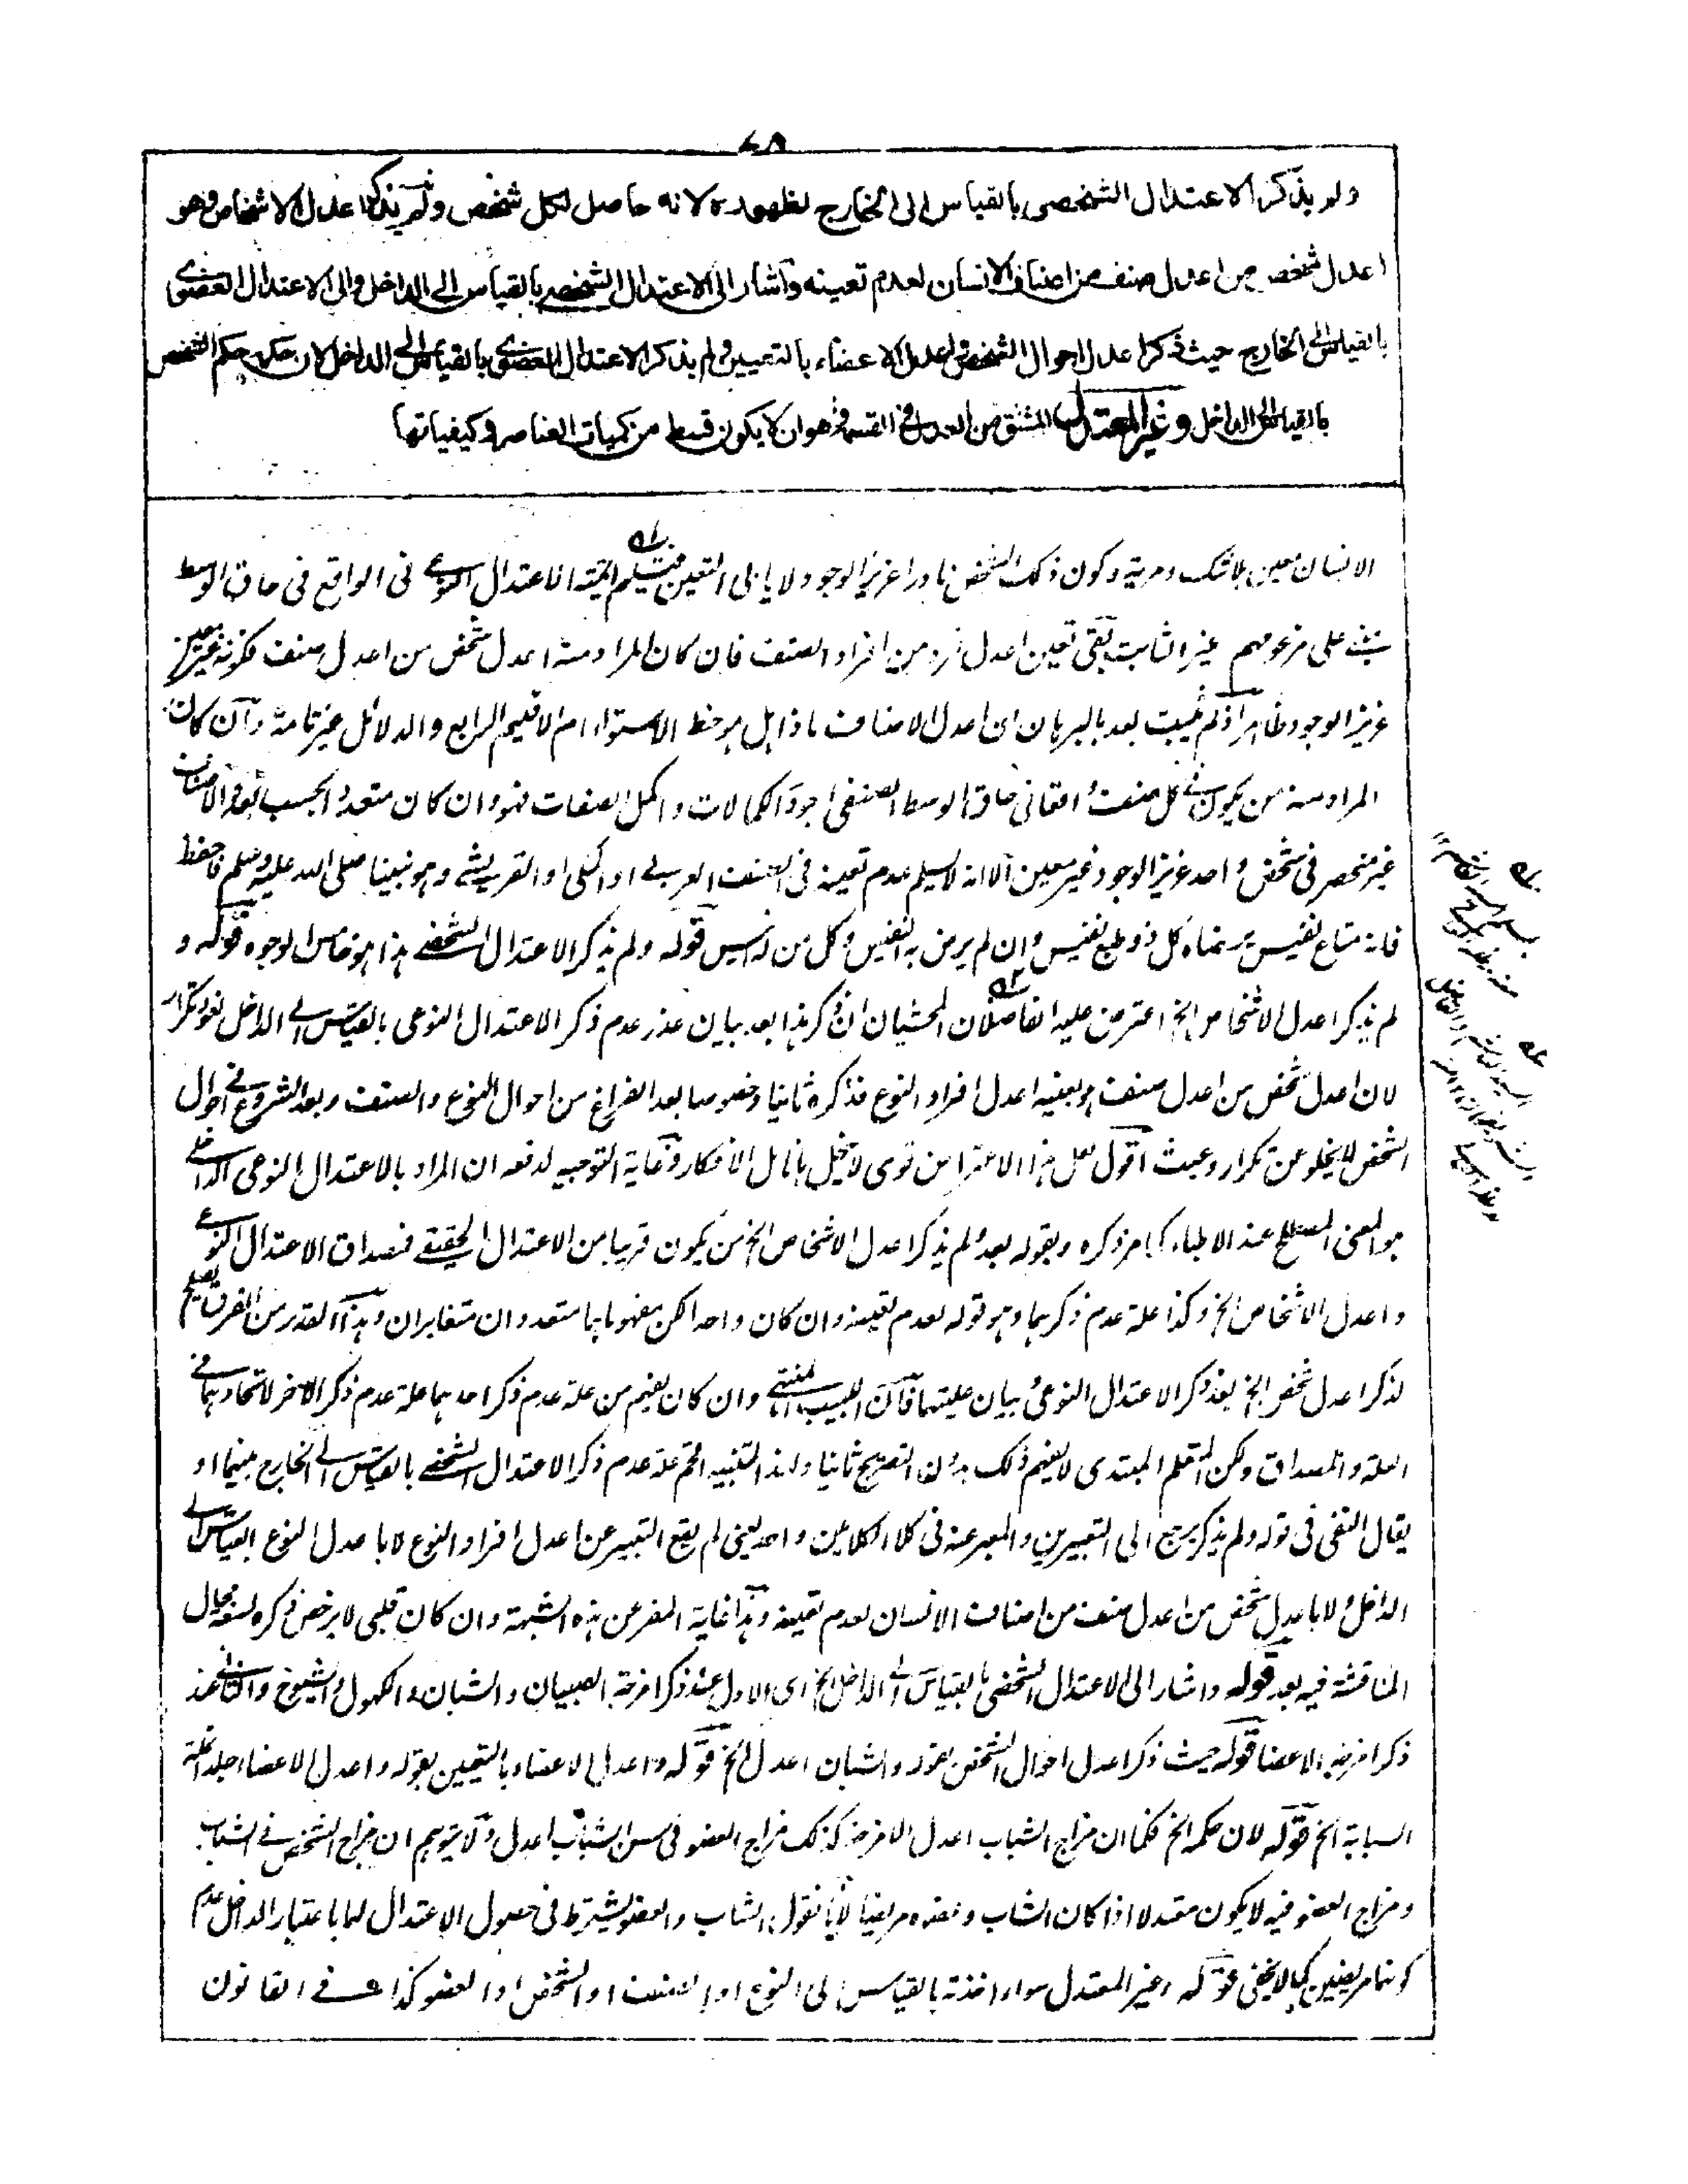 ولم يذكر الاعتدال الشخصى بالقياس الى الخارج لظهوره لانه حاصل لكل شخص ولم يذكر اعدل الاشخاص وهو
اعدل شخص من اعدل صنف من اصناف الانسان لعدم تعينه وأشار الى الاعتدال الشخصى بالقياس الى الداخل والى الاعتدال العضوى
بالقياس الى الخارج حيث ذكر اعدل احوال الشخص واعدل الاعضاء بالتعيين ولم يذكر الاعتدال العضوى بالقياس الى الداخل لان حكمه حكم الشخص
بالقياس الى الداخل وغير المعتدل المشتق من العدل فى القسمة وهو ان لا يكون قسط من كميات العناصر وكيفياتها
الانسان معين بلا شك ومرية وكون ذلك الشخص نادرا عزيز الوجود لا يابى التعين الاعتدال النوعى فى الواقع فى حاق الوسط
على مزعومهم غير الثابت بقى تعين اعدل فرد من افراد الصنف فان كان المراد منه اعدل شخص من اعدل صنف فكونه غير معين
عزيز الوجود ظاهر اذ لم يثبت بعد بالبرهان ان اعدل الاصناف ماذا هل هو خط الاستواء ام الاقليم الرابع والدلائل غير تامة وان كان
المراد منه من يكون فى كل صنف واقعا فى حاق الوسط الصنفى اجود الكمالات واكمل الصفات فهو وان كان متعددا بحسب تعدد الاصناف
غير منحصر فى شخص واحد عزيز الوجود غير معين الا انه لا يسلم عدم تعينه فى الصنف العربى او المكى او القريشى وهو نبينا صلى الله عليه وسلم فاحفظ
فانه متاع نفيس يرضاه كل ذو طبع نفيس وان لم يرض به النفيس وكل من قوله ولم يذكر الاعتدال الشخصى هذا هو خامس الوجوه قوله و
لم يذكر اعدل الاشخاص الخ اعترض عليه الفاضلان المحشيان ان ذكر هذا بعد بيان عذر عدم ذكر الاعتدال النوعى بالقياس الى الداخل لغو وتكرار
لان اعدل شخص من اعدل صنف هو بعينه اعدل افراد النوع فذكره ثانيا وخصوصا بعد الفراغ من احوال النوع والصنف وبعد الشروع فى احوال
الشخص لا يخلو عن تكرار وعبث اقول لعل هذا الاعتراض قوى لا ينحل بانامل الافكار وغاية التوجيه لدفعه ان المراد بالاعتدال النوعى الداخلى
هو المعنى المصطلح عند الاطباء كما مر ذكره وبقوله بعد ولم يذكر اعدل الاشخاص الخ من يكون قريبا من الاعتدال الحقيقى فمصداق الاعتدال النوعى
واعدل الاشخاص الخ وكذا علة عدم ذكرهما وهو قوله لعدم تعينه وان كان واحدا لكن مفهوماهما متعددان متغايران وهذا القدر من الفرق يصلح
لذكر اعدل شخص الخ بعد ذكر الاعتدال النوعى وبيان عليتهما فان اللبيب المنتهى وان كان يفهم من علة عدم ذكر احدهما علة عدم ذكر الاخر لاتحادهما فى
العلة والمصداق ولكن المتعلم المبتدى لا يفهم ذلك بدون التصريح ثانيا ولهذا التنبيه اقحم علة عدم ذكر الاعتدال الشخصى بالقياس الى الخارج بينهما او
يقال النفى فى قوله ولم يذكر يرجع الى التعبيرين والمعبر عنه فى كلا الكلامين واحد يعنى لم يقع التعبير عن اعدل افراد النوع لا باعدل النوع بالقياس الى
الداخل ولا باعدل شخص من اعدل صنف من اصناف الانسان لعدم تعينه وهذا غاية المفر عن هذه الشبهة وان كان قلبى لا يرخص ذكره لسعة مجال
المناقشة فيه بعد قوله واشار الى الاعتدال الشخصى بالقياس الى الداخل الخ اى الاول عند ذكر امزجة الصبيان والشبان والكهول والشيوخ والثانى عند
ذكر امزجة الاعضا قوله حيث ذكر اعدل احوال الشخص بقوله والشبان اعدل الخ قوله واعدل الاعضاء بالتعيين بقوله واعدل الاعضاء جلد انملة
السبابة الخ قوله لان حكمه الخ فكما ان مزاج الشباب اعدل الامزجة كذلك مزاج العضو فى سن الشباب اعدل ولا يتوهم ان مزاج الشخص فى الشباب
ومزاج العضو فيه لا يكون معتدلا اذا كان الشاب وعضوه مريضا لانا نقول الشاب والعضو يشترط فى حصول الاعتدال لهما باعتبار الداخل عدم
كونهما مريضين كما لا يخفى قوله وغير المعتدل سواء اخذته بالقياس الى النوع او الصنف او الشخص او العضو كذا فى القانون